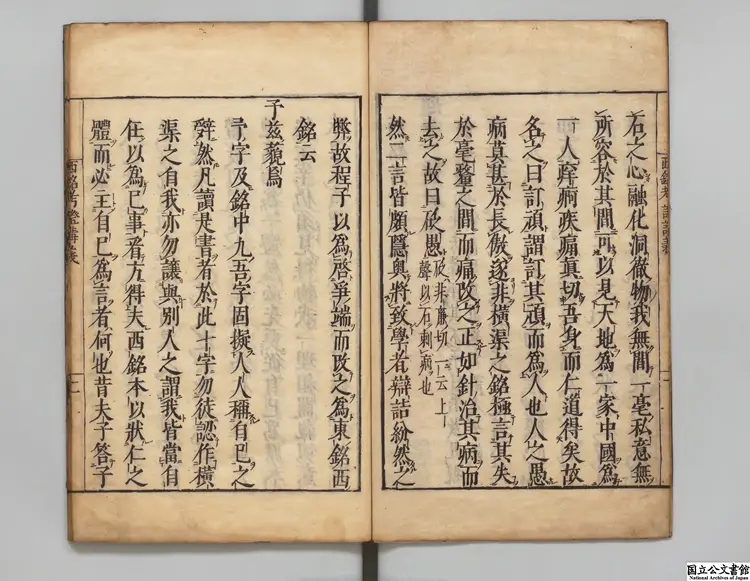 石之心融化洞徹物我無間一毫私意無
所容於其間可以見天地為一家中國為
一人痒痾疾痛眞切吾身而仁道得矣故
名之曰訂頑謂訂其頑而為人也人之愚
病莫甚於長傲遂非橫渠之銘極言其失
於毫釐之間而痛改之正如針治其病而
去之故曰砭愚砭非廉切一云上聲以石刺病也
然二言皆頗隱奧將致學者辯詰紛然之
弊故程子以為啓爭端而改之為東銘西
銘云
予兹藐焉
予字及銘中九吾字固擬人人稱自己之
辭然凡讀是書者於此十字勿徒認作橫
渠之自我亦勿讓與別人之謂我皆當自
任以為己事者方得夫西銘本以狀仁之
體而必主自己為言者何也昔夫子答子
西銘考證講義
国立公文書館
National Archives of Japan